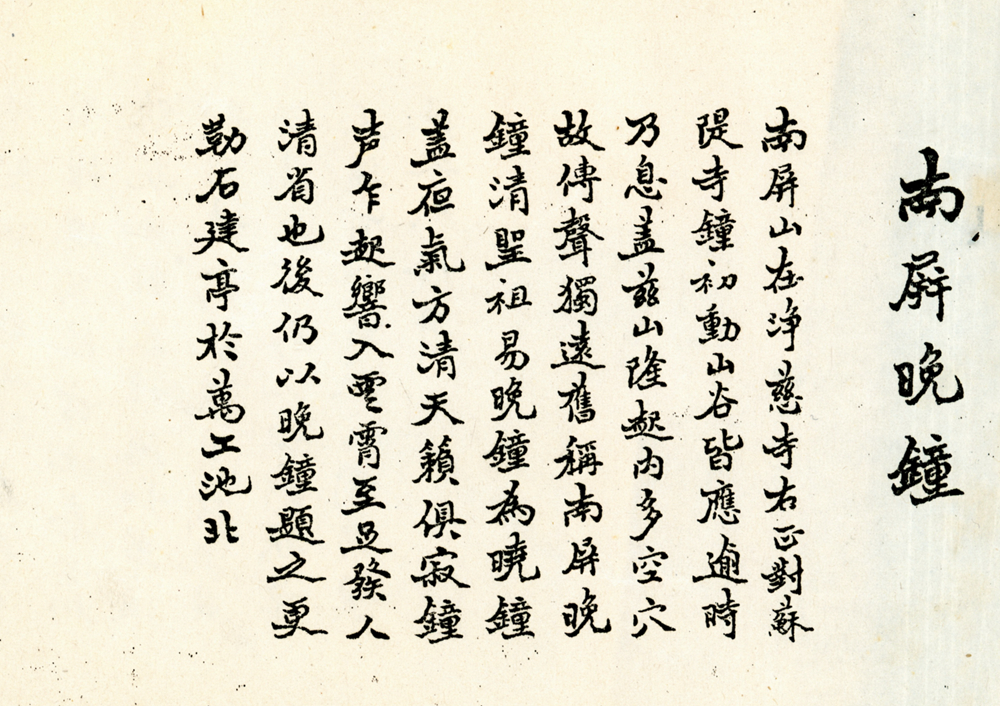 南屏晚鐘
南屏山在淨慈寺右正對蘇
隄寺鐘初動山谷皆應逾時
乃息蓋茲山隆起内多空穴
故傳聲獨遠舊稱南屏晚
鐘清聖祖易晚鐘為曉鐘
盖夜氣方清天籟俱寂鐘
声乍起響入雲霄至足發人
清省也後仍以晚鐘題之更
勒石建亭於萬工池北